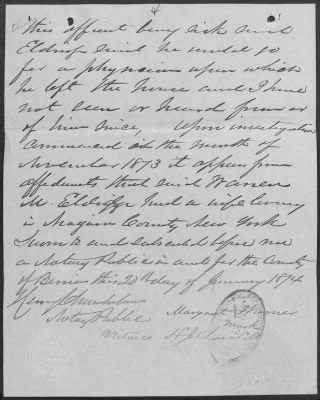 4
this affiant being sick said
Eldredge said he would go
for a physician upon which
he left the house and I have
not seen or heard from or
of him since, Upon investigation
commenced in the month of
November 1873 it appears from
affidavits that said Warren
M. Eldredge had a wife living
in Niagara County New York
Sworn to and subscribed before me
a Notary Public in and for the County
of Berrien this 20th day of January 1874
Henry Chamberlain
Notary Public
Margaret Warner
mark
Witness H J